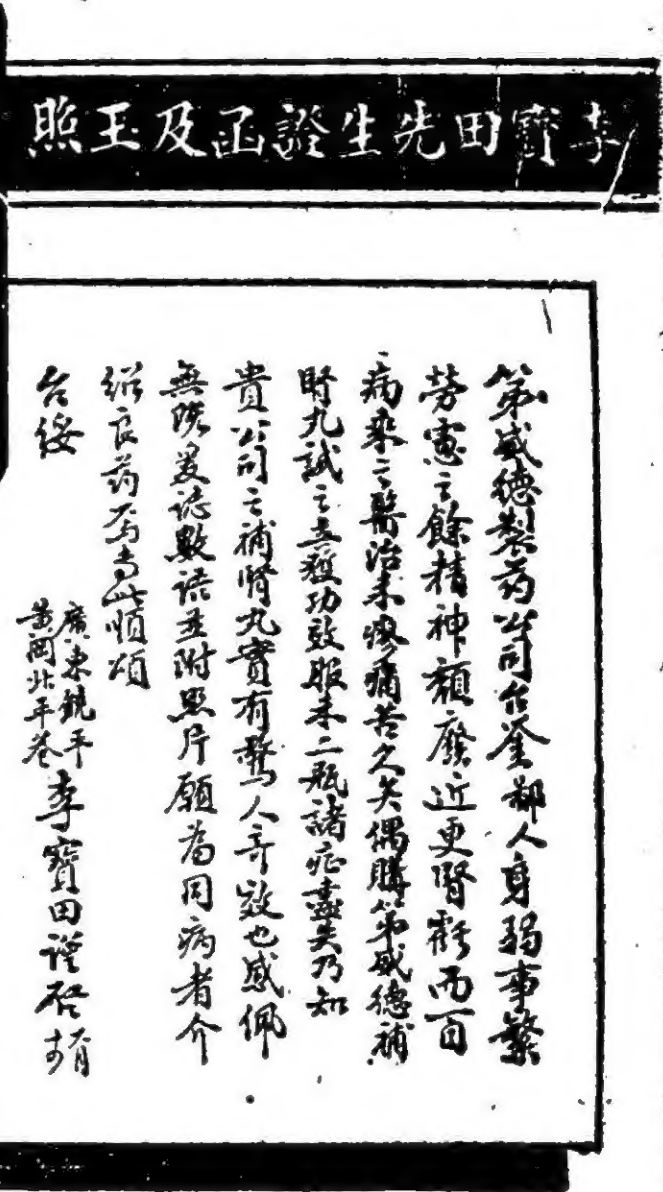 李寶田先生證函及玉照
第威德製药公司台鉴鄙人身弱事繁
劳虑之餘精神頹廢近更腎虧而百
病来之醫治未愈痛苦久矣偶購第威德補
腎丸試之立獲功效服未二瓶諸症盡失乃知
貴公司之補腎丸實有驚人奇效也感佩
無既爰誌數语並附照片願為同病者介
紹良药焉专此順頌
台绥
廣東饒平
黄岡北平巷 李寶田謹啓